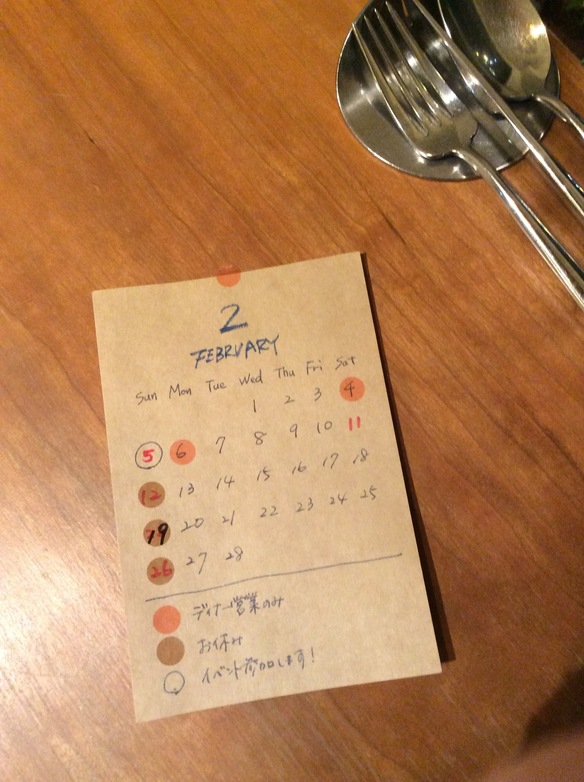 2
FEBRUARY
Sun Mon Tue Wed Thu Fri Sat
1 2 3 4
5 6 7 8 9 10 11
12 13 14 15 16 17 18
19 20 21 22 23 24 25
26 27 28
ディナー営業のみ
お休み
イベント参加します!